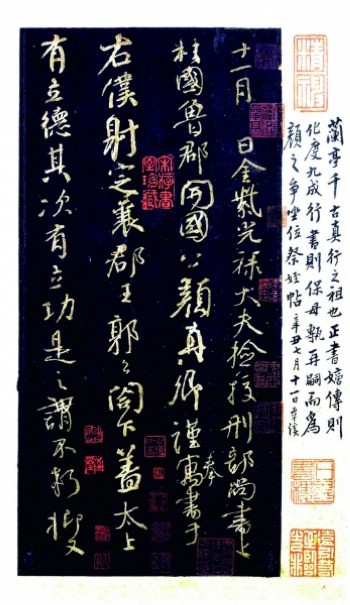 蘭亭千古真行之祖也正書嬗傳則
化度九成行書則保母甎再嗣而為
顏之爭坐位祭姪帖 辛丑七月十一日
十一月 日金紫光祿大夫檢校刑部尚書上
柱國魯郡開國公顏真卿謹奉寓書于
右僕射定襄郡王郭公閤下蓋太上
有立德其次有立功是之謂不朽抑又